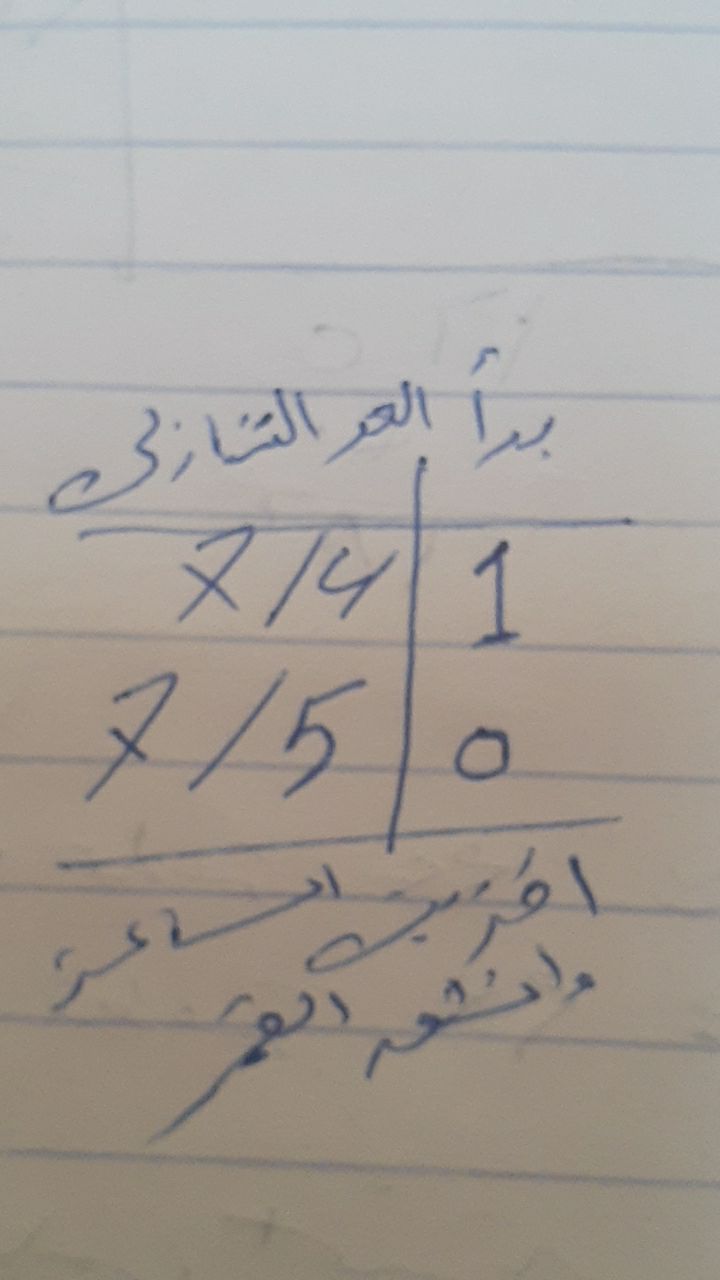 بدأ العد التنازلى
1 | 7/4
0 | 7/5
اقتربت الساعة
وانشق القمر